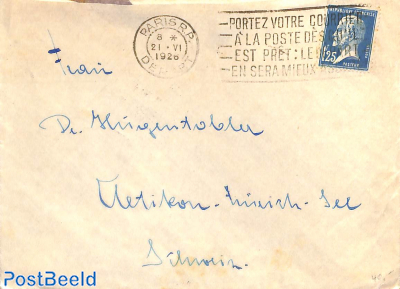 PARIS R.P.
8 *
21 · VI
1926
DEPART
PORTEZ VOTRE COURRIER
À LA POSTE DÈS
EST PRÊT: LE
EN SERA MIEUX
REPUBLIQUE FRANÇAISE
1,25
PASTEUR
Frau
Dr. Hügentobler
Uetikon-Zürich-See
Schweiz.
PostBeeld